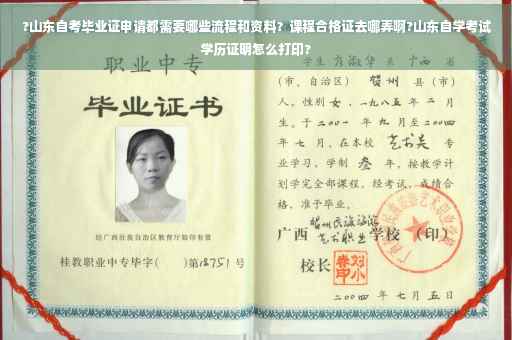 ?山东自考毕业证申请都需要哪些流程和资料？课程合格证去哪弄啊?山东自学考试
学历证明怎么打印?
职业中专
毕业证书
经广西壮族自治区教育厅验印有效
桂教职业中专毕字（ ）第 18751 号
学生
（市、自治区）贺州 县（市）
人，性别 女，一九八五年 二 月
生。于二〇〇一 年 九 月至二〇〇四
年 七 月，在本校 艺术类 专
业学习，学制 叁 年，按教学计
划学完全部课程，经考试，成绩合
格，准予毕业。
广西 贺州民族旅游艺术职业学校（印）
校长
二〇〇四 年 七 月 五 日